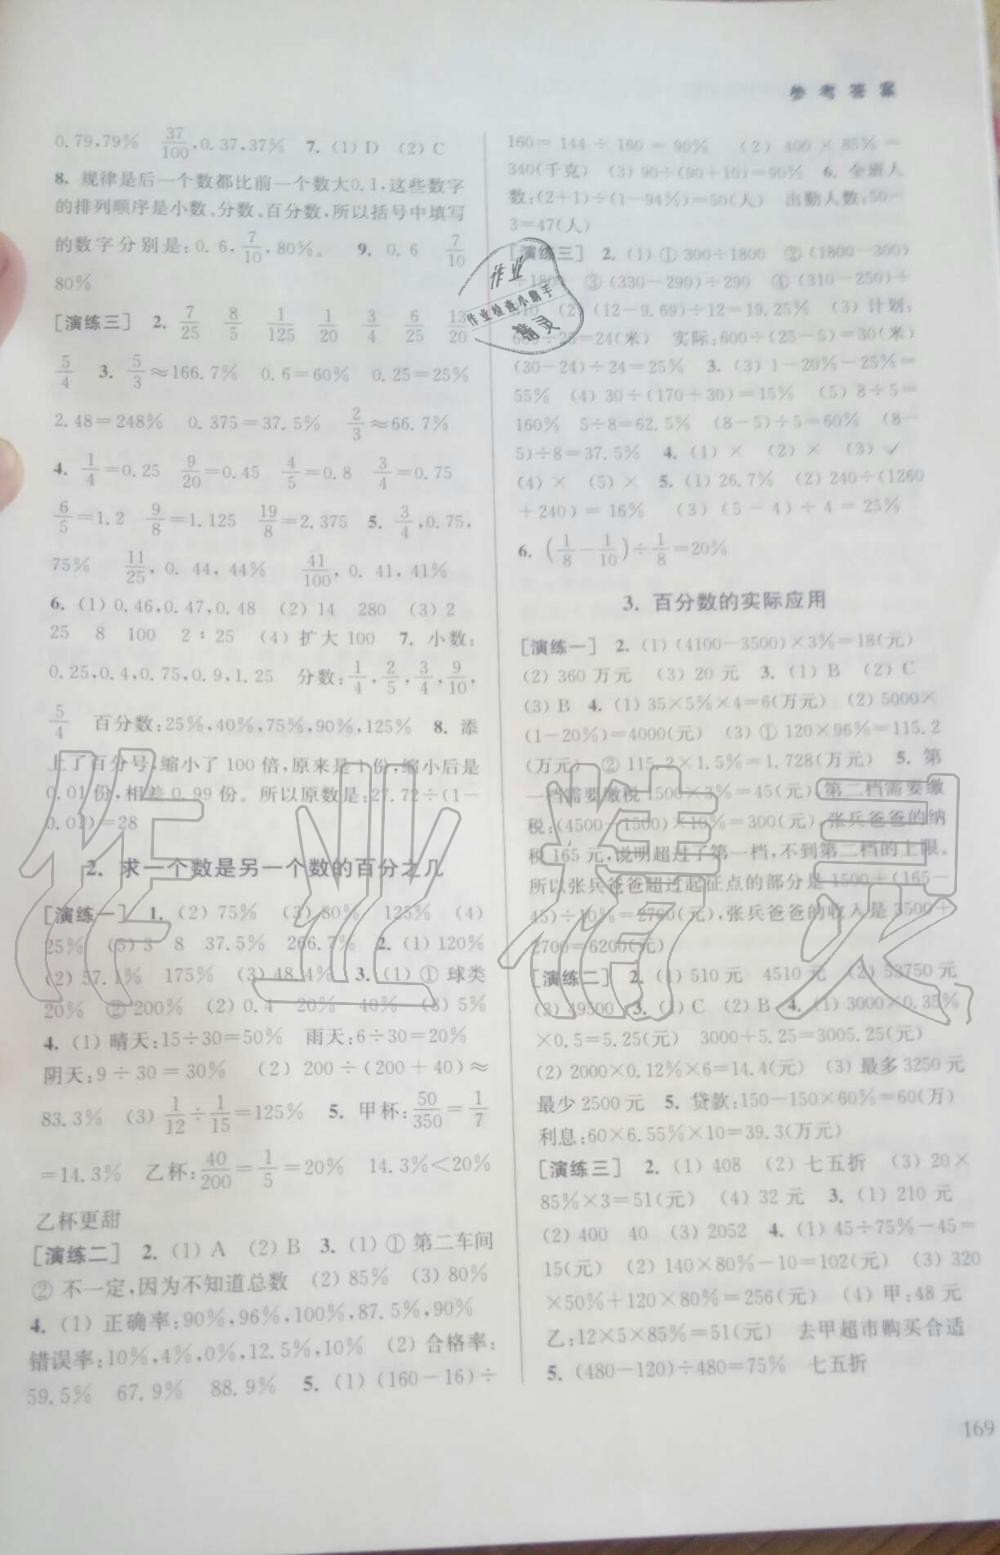 参考答案
0.79,79% 37/100,0.37,37% 7. (1) D (2) C
8. 规律是后一个数都比前一个数大0.1,这些数字
的排列顺序是小数、分数、百分数,所以括号中填写
的数字分别是:0.6,7/10,80%。 9. 0.6 7/10
80%
[演练三] 2. 7/25 8/5 1/125 1/20 3/4 6/25 13/20
5/4 3. 5/3≈166.7% 0.6=60% 0.25=25%
2.48=248% 0.375=37.5% 2/3≈66.7%
4. 1/4=0.25 9/20=0.45 4/5=0.8 3/4=0.75
6/5=1.2 9/8=1.125 19/8=2.375 5. 3/4,0.75,
75% 11/25,0.44,44% 41/100,0.41,41%
6. (1) 0.46,0.47,0.48 (2) 14 280 (3) 2
25 8 100 2∶25 (4) 扩大100 7. 小数:
0.25,0.4,0.75,0.9,1.25 分数:1/4,2/5,3/4,9/10,
5/4 百分数:25%,40%,75%,90%,125% 8. 添
上了百分号,缩小了100倍,原来是1份,缩小后是
0.01份,相差0.99份。所以原数是:27.72÷(1-
0.01)=28
2. 求一个数是另一个数的百分之几
[演练一] 1. (2) 75% (3) 80% 125% (4)
25% (5) 3 8 37.5% 266.7% 2. (1) 120%
(2) 57.1% 175% (3) 48.4% 3. (1) ① 球类
20% ② 200% (2) 0.4 20% 40% (3) 5%
4. (1) 晴天:15÷30=50% 雨天:6÷30=20%
阴天:9÷30=30% (2) 200÷(200+40)≈
83.3% (3) 1/12÷1/15=125% 5. 甲杯:50/350=1/7
=14.3% 乙杯:40/200=1/5=20% 14.3%<20%
乙杯更甜
[演练二] 2. (1) A (2) B 3. (1) ① 第二车间
② 不一定,因为不知道总数 (2) 85% (3) 80%
4. (1) 正确率:90%,96%,100%,87.5%,90%
错误率:10%,4%,0%,12.5%,10% (2) 合格率:
59.5% 67.9% 88.9% 5. (1) (160-16)÷
160=144÷160=90% (2) 400×85%=
340(千克) (3) 90÷(90+10)=90% 6. 全班人
数:(2+1)÷(1-94%)=50(人) 出勤人数:50-
3=47(人)
[演练三] 2. (1) ① 300÷1800 ② (1800-300)
÷1800 ③ (330-290)÷290 ④ (310-250)÷
310 (2) (12-9.69)÷12=19.25% (3) 计划:
600÷25=24(米) 实际:600÷(25-5)=30(米)
(30-24)÷24=25% 3. (3) 1-20%-25%=
55% (4) 30÷(170+30)=15% (5) 8÷5=
160% 5÷8=62.5% (8-5)÷5=60% (8-
5)÷8=37.5% 4. (1) × (2) × (3) ✓
(4) × (5) × 5. (1) 26.7% (2) 240÷(1260
+240)=16% (3) (5-4)÷4=25%
6. (1/8-1/10)÷1/8=20%
3. 百分数的实际应用
[演练一] 2. (1) (4100-3500)×3%=18(元)
(2) 360万元 (3) 20元 3. (1) B (2) C
(3) B 4. (1) 35×5%×4=6(万元) (2) 5000×
(1-20%)=4000(元) (3) ① 120×96%=115.2
(万元) ② 115.2×1.5%=1.728(万元) 5. 第
一档需要缴税1500×3%=45(元),第二档需要缴
税:(4500-1500)×10%=300(元),张兵爸爸的纳
税165元,说明超过了第一档,不到第二档的上限。
所以张兵爸爸超过起征点的部分是1500+(165-
45)÷10%=2700(元),张兵爸爸的收入是3500+
2700=6200(元)
[演练二] 2. (1) 510元 4510元 (2) 53750元
(3) 49500 3. (1) C (2) B 4. (1) 3000×0.35%
×0.5=5.25(元) 3000+5.25=3005.25(元)
(2) 2000×0.12%×6=14.4(元) (3) 最多3250元
最少2500元 5. 贷款:150-150×60%=60(万)
利息:60×6.55%×10=39.3(万元)
[演练三] 2. (1) 408 (2) 七五折 (3) 20×
85%×3=51(元) (4) 32元 3. (1) 210元
(2) 400 40 (3) 2052 4. (1) 45÷75%-45=
15(元) (2) 140×80%-10=102(元) (3) 320
×50%+120×80%=256(元) (4) 甲:48元
乙:12×5×85%=51(元) 去甲超市购买合适
5. (480-120)÷480=75% 七五折
169
作业
作业检查小助手
精灵
作业精灵